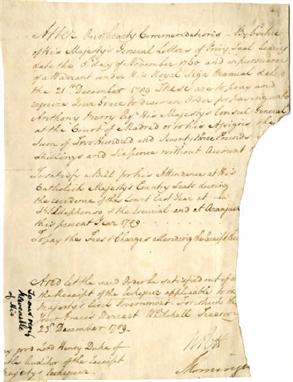 After Our hearty Commendations By Virtue
of His Majesty's General Letters of Privy Seal bearing
date the 5th day of November 1760 and in pursuance
of a Warrant under His Royal Sign Manual dated
the 21st December 1789 These are to pray and
require Your Grace to draw an Order for paying unto
Anthony Merry Esqr His Majesty's Consul General
at the Court of Madrid or to his Assigns the
Sum of Two Hundred and Seventy three Pounds
Shillings and Sixpence without Account
To satisfy a Bill for his Attendance at His
Catholick Majesty's Country Seats during
the residence of the Court last Year at
St Ildephonso & the Escurial and at Aranjuez
this present Year 1789
To pay the Fees & Charges attending the receipt
And let the said Order be satisfied out of
the receipt of the Exchequer applicable to His
Majesty's Civil Government For which this
Your Grace's Warrant Whitehall Treasury
23d December 1789
W Pitt
Mornington
Lord Henry Duke of
Auditor of the Receipt
Majesty's Exchequer
To our very
Newcastle
of His